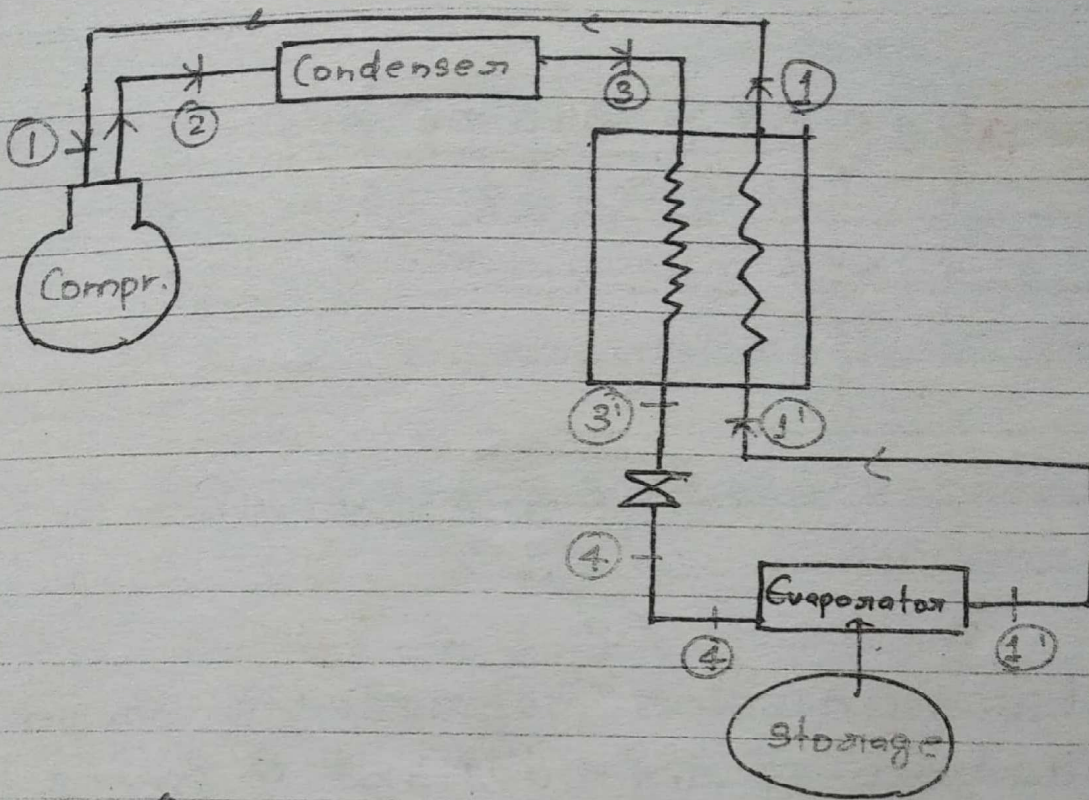 Condenser
3
1
2
1
Compr.
3'
1'
4
Evaporator
4
1'
Storage